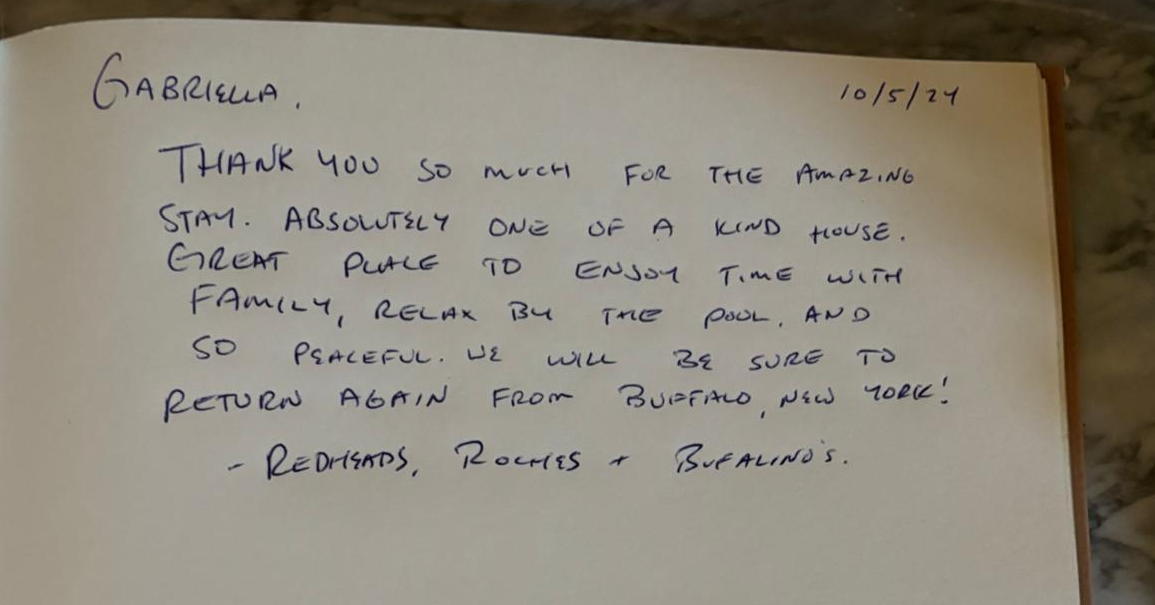 GABRIELLA. 10/5/24
THANK YOU SO MUCH FOR THE AMAZING
STAY. ABSOLUTELY ONE OF A KIND HOUSE.
GREAT PLACE TO ENJOY TIME WITH
FAMILY, RELAX BY THE POOL, AND
SO PEACEFUL. WE WILL BE SURE TO
RETURN AGAIN FROM BUFFALO, NEW YORK!
- REDHEADS, ROCHES + BUFALINO'S.